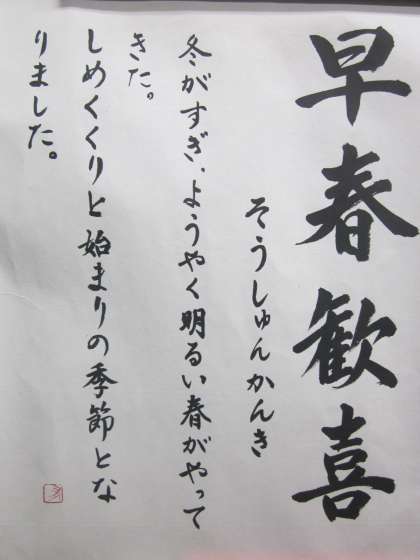 早春歓喜
そうしゅんかんき
冬がすぎ、ようやく明るい春がやって
きた。
しめくくりと始まりの季節とな
りました。